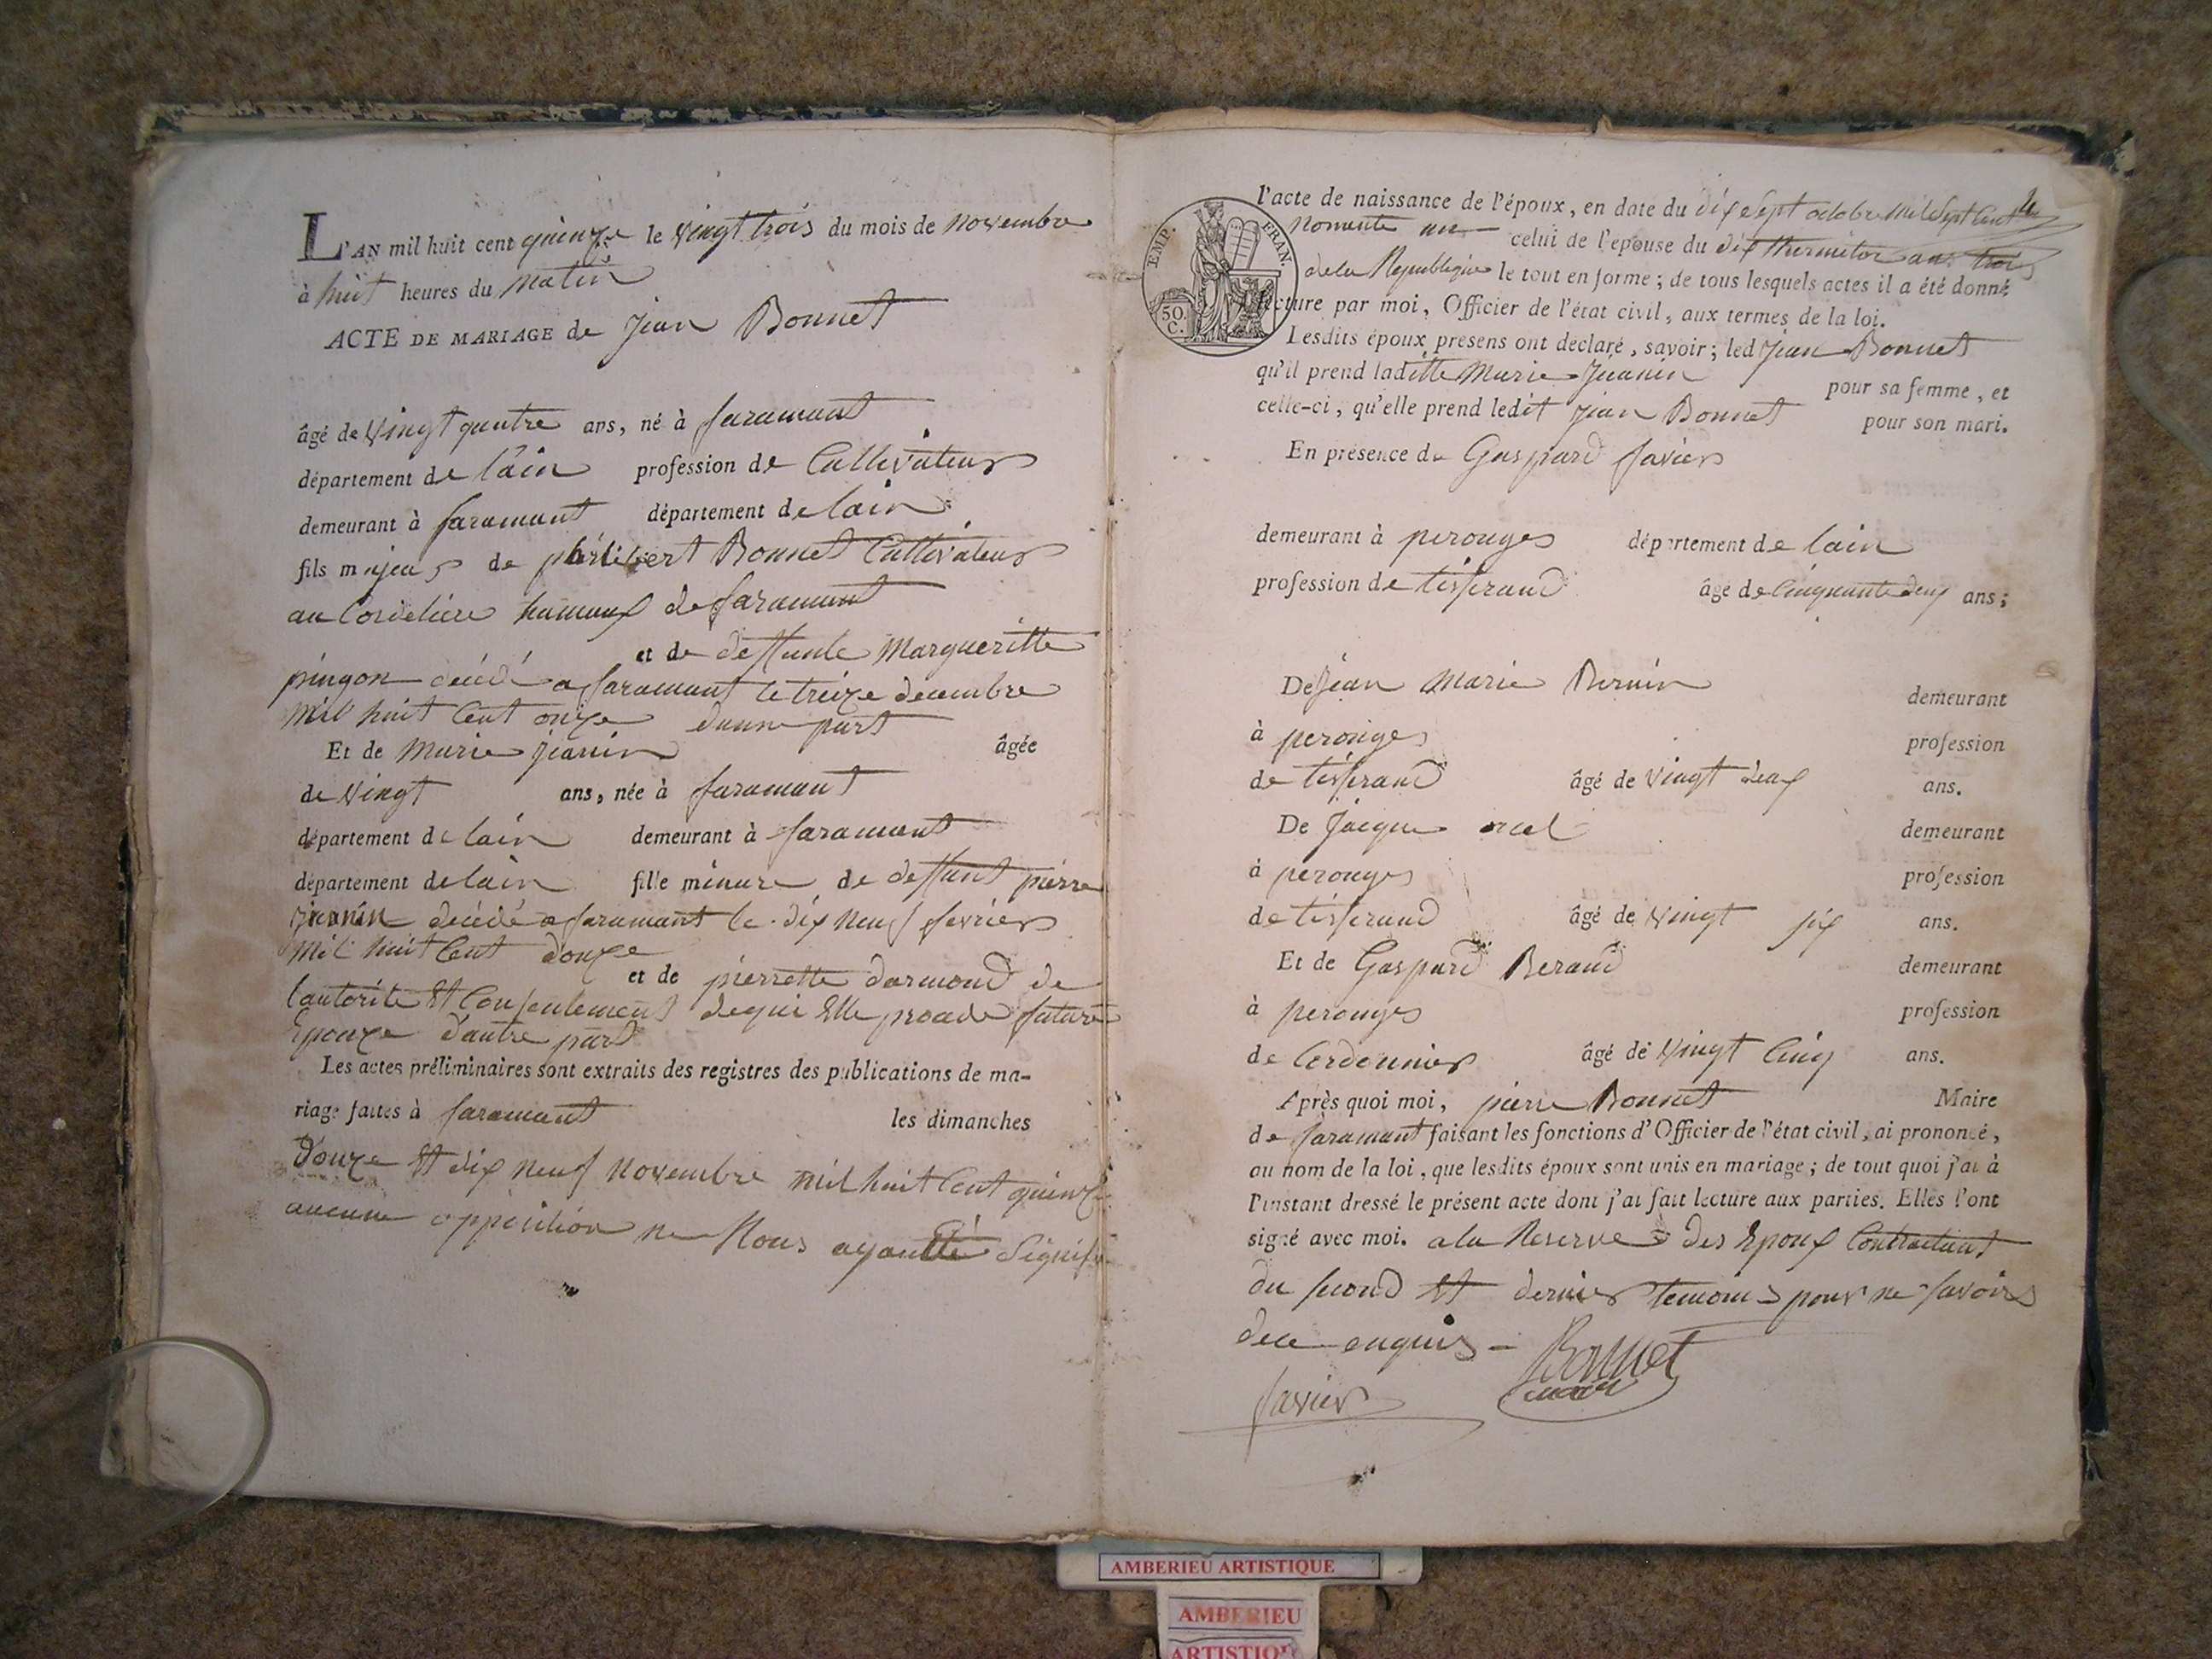 L'AN mil huit cent quinze le vingt trois du mois de novembre
à huit heures du matin
ACTE DE MARIAGE de Jean Bonnet
âgé de vingt quatre ans, né à faramant
département de l'ain profession de Cultivateur
demeurant à faramant département de lain
fils majeur de philibert Bonnet Cultivateur
au Cordeliere hameaux de faramant
et de deffunte Margueritte
pingon décédé a faramant le treize decembre
mil huit Cent onze dunne part
Et de Marie Jeanin âgée
de vingt ans, née à faramant
département de lain demeurant à faramant
département de lain fille minure de deffunt pierre
Jeanin décédé a faramant le dix neuf fevrier
mil huit Cent douze
et de pierrette darmond de
lautorité Et Consentement dequi Elle procede future
Epouze d'autre part
Les actes préliminaires sont extraits des registres des publications de ma-
riage faites à faramant les dimanches
Douze Et dix neuf novembre mil huit Cent quinze
aucune opposition ne Nous ayant Eté Signifié
l'acte de naissance de l'époux, en date du dix Sept octobre Mil Sept Cent
Nonante un celui de l'épouse du dix thermidor an trois
EMP. FRAN.
50 C.
dela Republique le tout en forme ; de tous lesquels actes il a été donné
lecture par moi, Officier de l'état civil, aux termes de la loi.
Lesdits époux présens ont déclaré, savoir ; led Jean Bonnet
qu'il prend laditte Marie Jeanin pour sa femme, et
celle-ci, qu'elle prend ledit Jean Bonnet pour son mari.
En présence de Gaspard favier
demeurant à perouges département de lain
profession de tisserand âgé de Cinquante deux ans ;
De Jean Marie Bernin demeurant
à perouges profession
de tisserand âgé de vingt deux ans.
De Jacque demeurant
à perouges profession
de tisserand âgé de vingt six ans.
Et de Gaspard Beraud demeurant
à perouges profession
de Cordonnier âgé de vingt Cinq ans.
Après quoi moi, pierre Bonnet Maire
de faramant faisant les fonctions d'Officier de l'état civil, ai prononcé,
au nom de la loi, que lesdits époux sont unis en mariage ; de tout quoi j'ai à
l'instant dressé le présent acte dont j'ai fait lecture aux parties. Elles l'ont
signé avec moi. a la Reserve des Epoux Contractant
du second Et dernier temoins pour ne savoir
dece enquis
Bonnet
maire
favier
AMBERIEU ARTISTIQUE
AMBERIEU
ARTISTIQUE